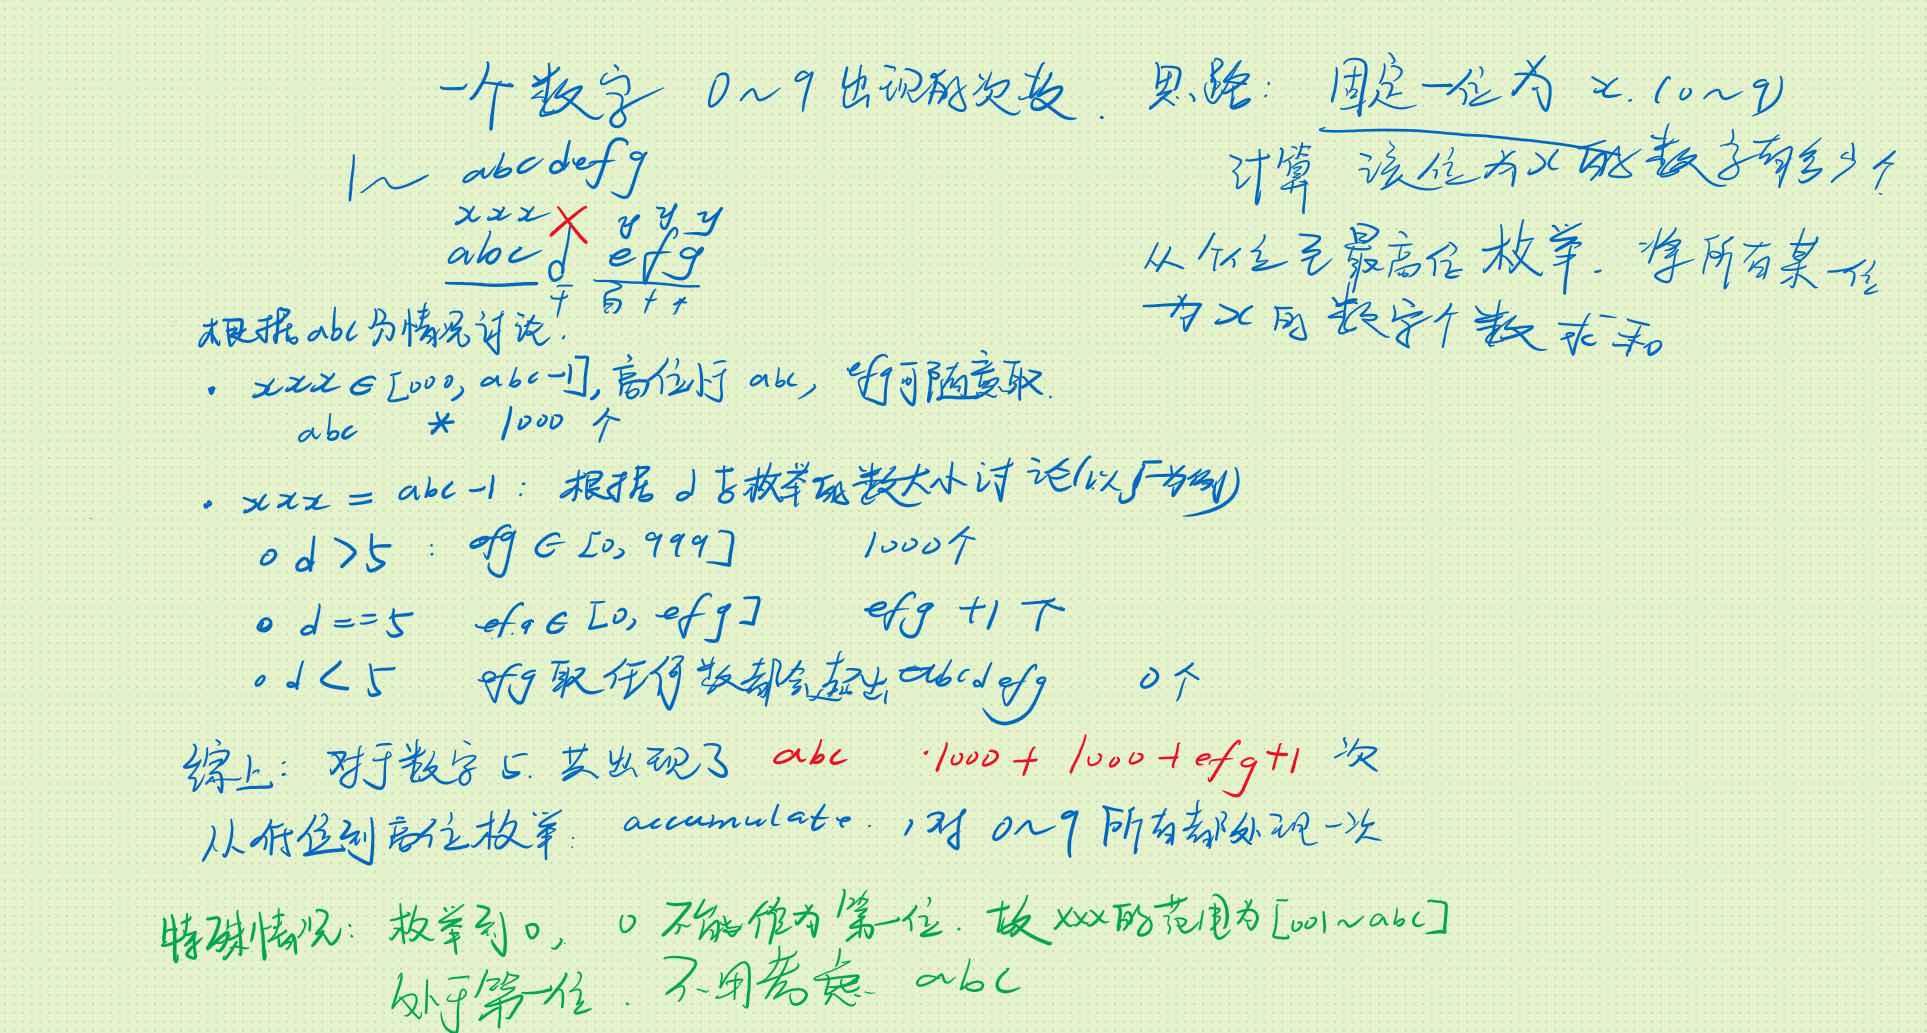 一个数字 0～9出现的次数. 思路: 固定一位为 x. (0～9)
1～ abcdefg
计算 该位为x的数字有多少个
xxx X yyy
abc d efg
千 百 十 个
从个位至最高位枚举. 将所有某一位
为x的数字个数求和。
根据abc分情况讨论.
· xxx∈[000, abc-1], 高位小于 abc, efg可随意取.
abc * 1000 个
· xxx = abc-1: 根据d与枚举的数大小讨论(以5为例)
○ d>5 : efg∈[0, 999] 1000个
○ d==5 efg∈[0, efg] efg +1 个
○ d<5 efg取任何数都会超出abcdefg 0个
综上: 对于数字 5. 共出现了 abc ·1000+ 1000+efg+1 次
从低位到高位枚举. accumulate. , 对 0～9所有都处理一次
特殊情况: 枚举到0, 0不能作为第一位. 故xxx的范围为[001～abc]
处于第一位. 不用考虑 abc